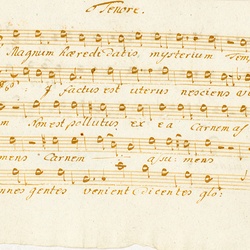 Tenore.
Magnum hæreditatis, mysterium Tem
factus est uterus nesciens vi
m Non est pollutus ex ea Carnem a
mens Carnem assumens
nnes gentes venient dicentes glo